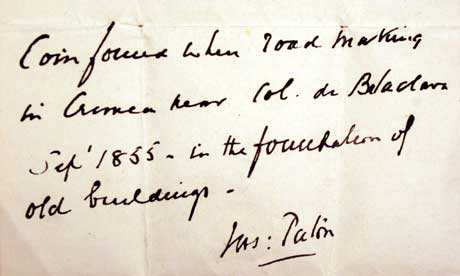 Coin found when road making
in Crimea near Col. de Balaclava
Sepᵗ 1855 - in the foundation of
old buildings -
Jas: Paton